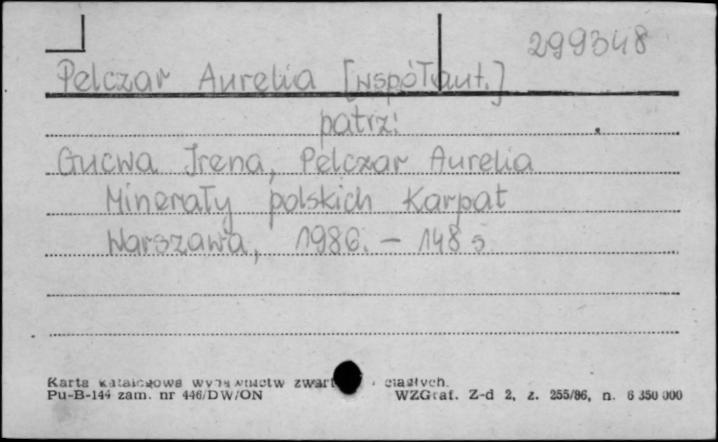 299348
Pelczar Aurelia [współaut.]
patrz:
Gucwa Irena, Pelczar Aurelia
Minerały polskich Karpat
Warszawa, 1986. – 148 s.
Karta katalogowa wydawnictw zwart ciągłych.
Pu-B-144 zam. nr 446/DW/ON WZGraf. Z-d 2, z. 255/86, n. 6 350 000